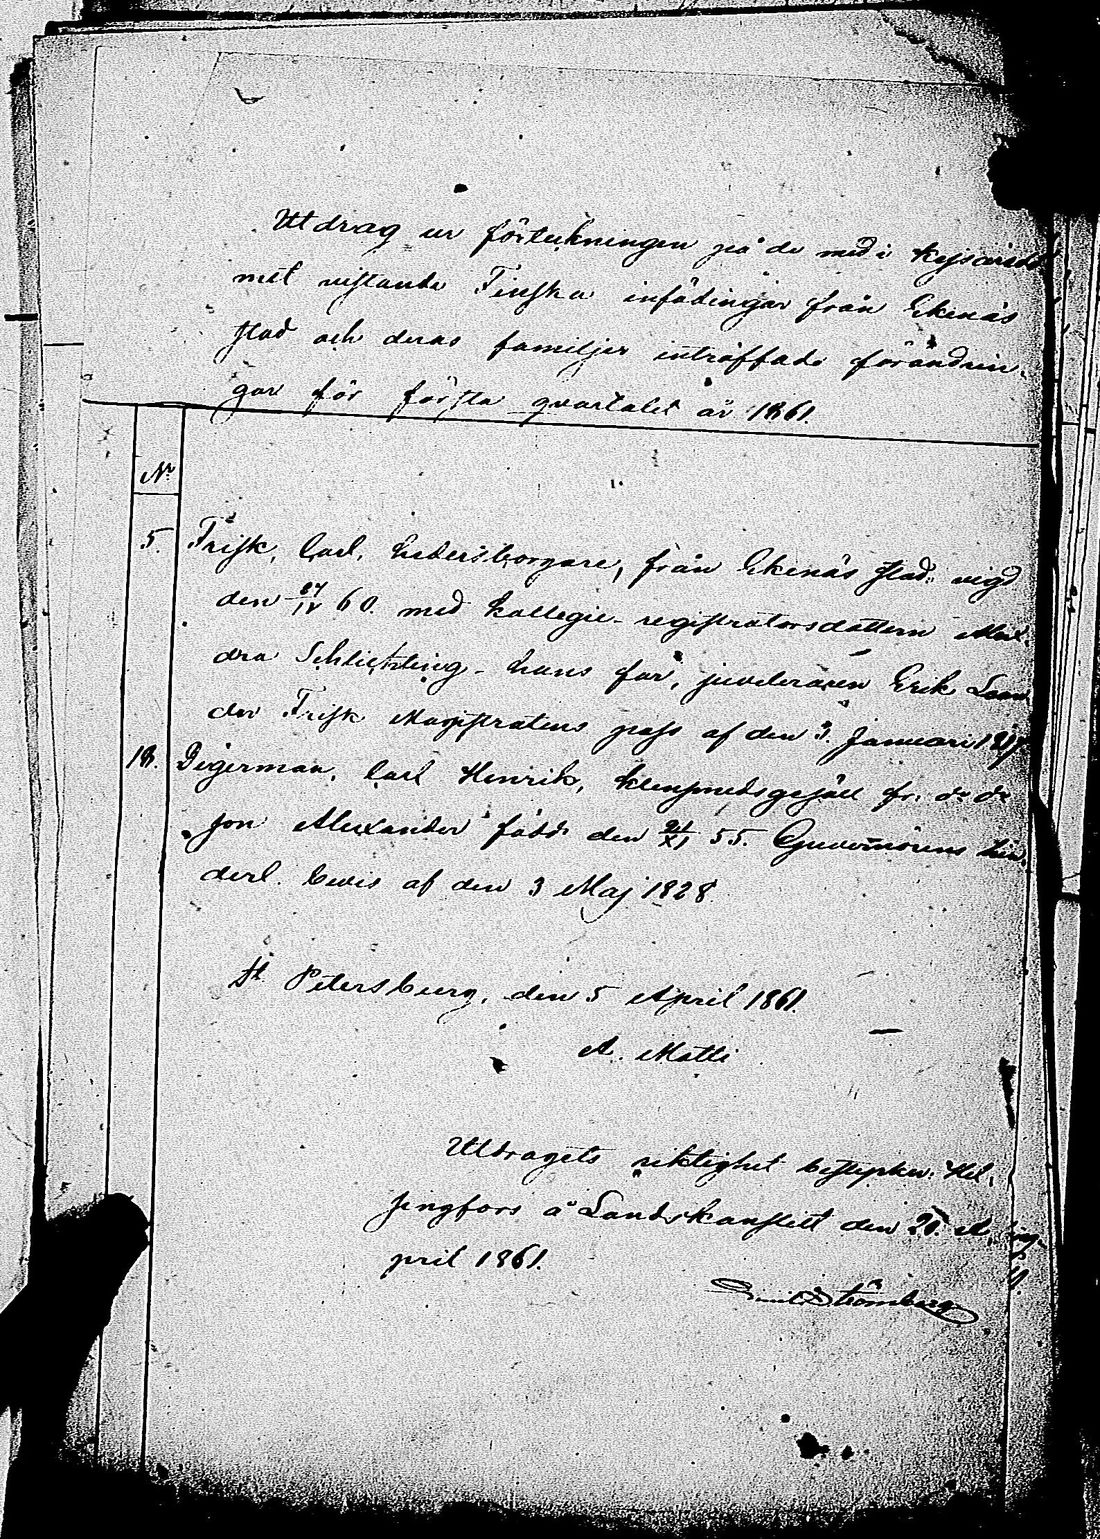 Utdrag ur förteckningen på de med i Kejsaredö-
met vistande Finska infödingar från Ekenäs
stad och deras familjer inträffade förändrin-
gar för första qvartalet år 1861.
Nr
5. Frisk, Carl, hedersborgare, från Ekenäs stad; vigd
den 27/IV 60. med kollegie-registratorsdottern Alex.
dra Schlichting - hans far, juveleraren Erik Lean
der Frisk Magistratens pass af den 3. Januari
18. Digerman, Carl Henrik, klensmedsgesäll fr. do do
son Alexander född den 24/XI 55. Guvernörens hin.
derl. bevis af den 3 Maj 1828.
St Petersburg, den 5 April 1861.
A. Matti
Utdragets riktighet bestyrker: Hel,
singfors å Landskansliet den 20. A,
pril 1861.
Emil Strömberg